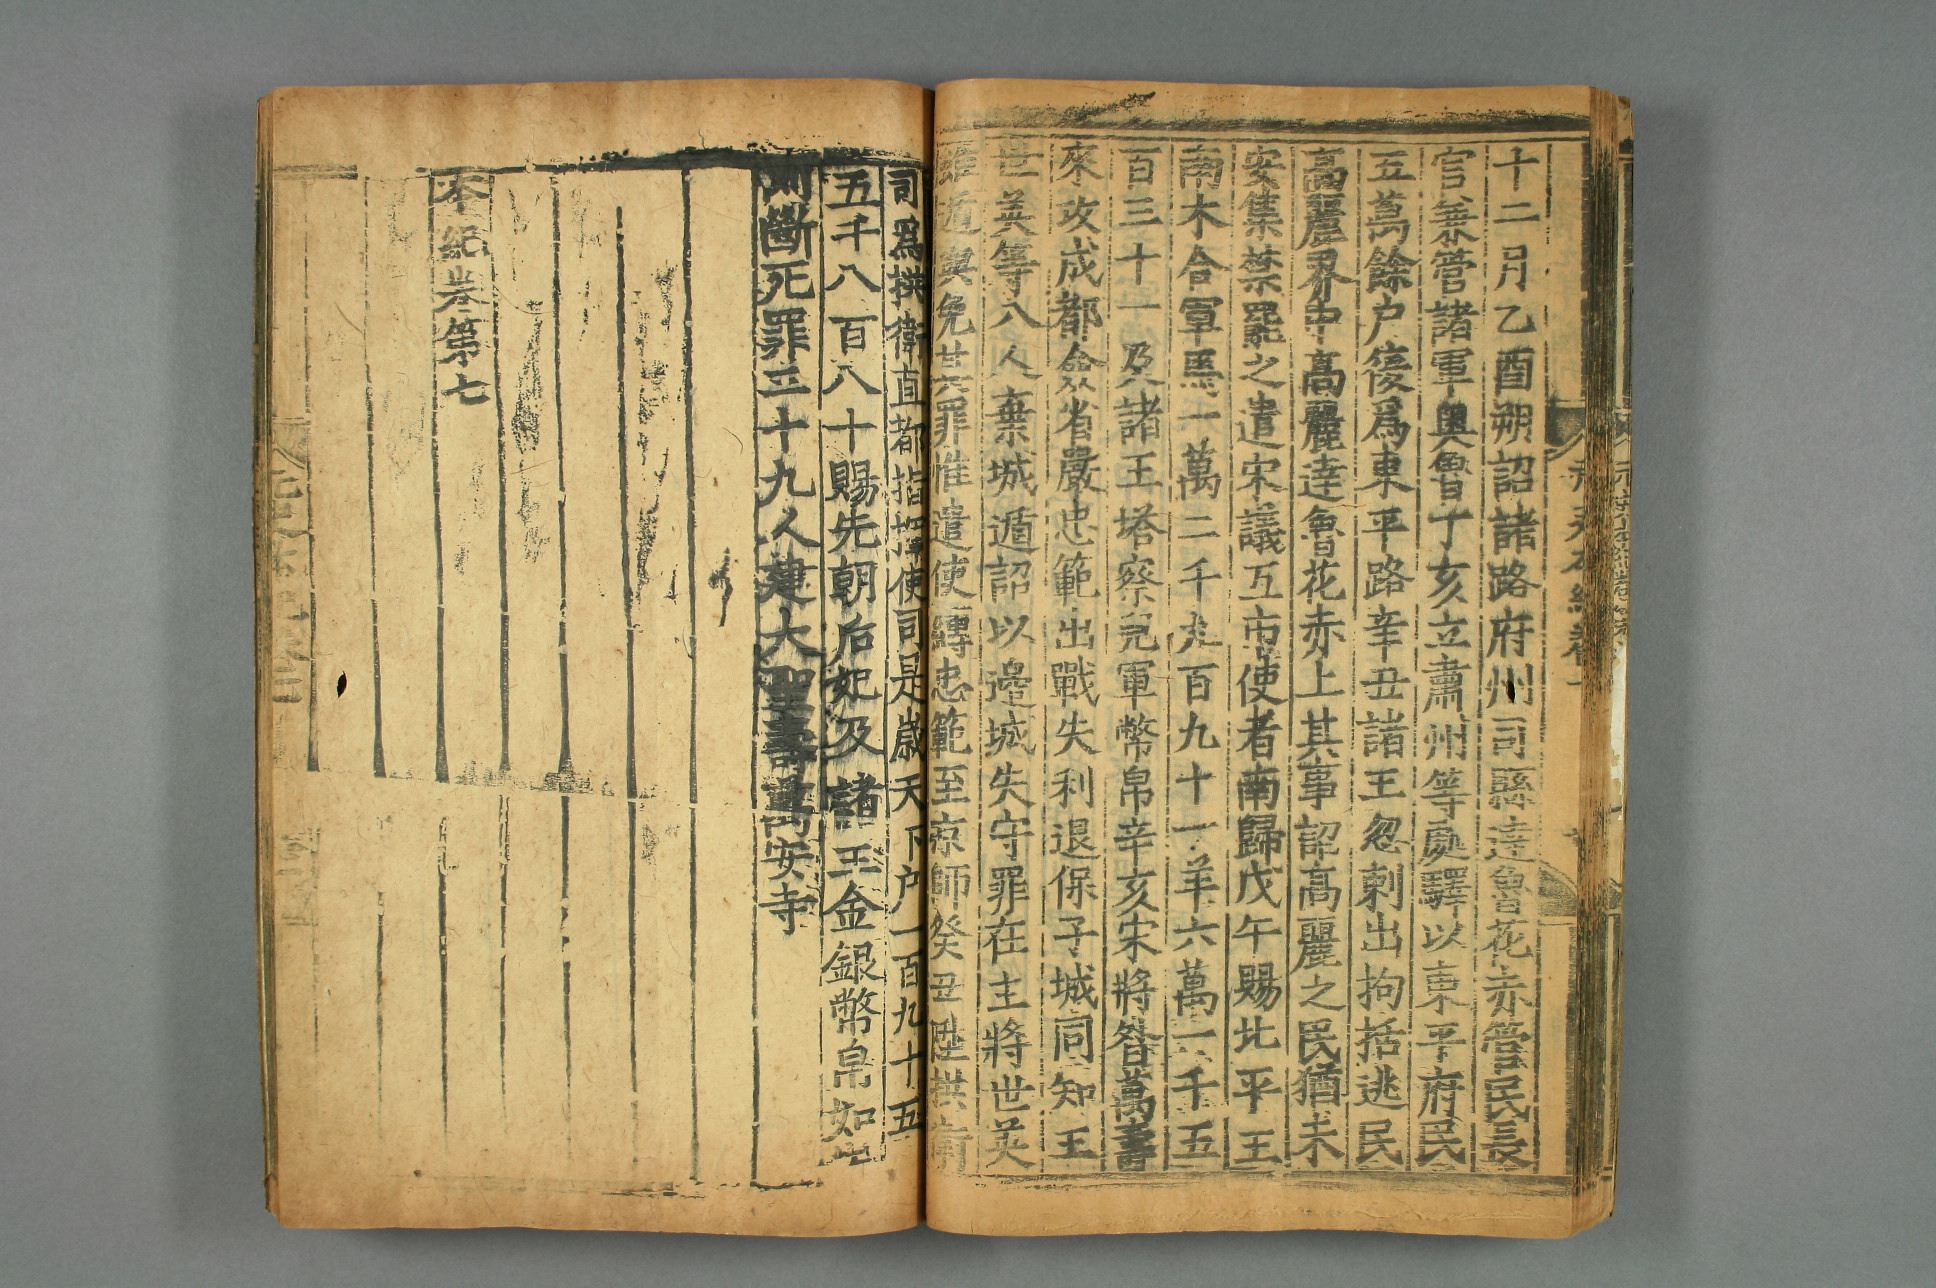 十二月乙酉朔詔諸路府州司縣達魯花赤管民長
官兼管諸軍奧魯丁亥立肅州等處驛以東平府民
五萬餘户復爲東平路辛丑諸王忽剌出拘括逃民
高麗界中高麗達魯花赤上其事詔高麗之民猶未
安集禁罷之遣宋議互市使者南歸戊午賜北平王
南木合軍馬一萬二千九百九十一羊六萬一千五
百三十一及諸王塔察兒軍幣帛辛亥宋將昝萬壽
來攻成都僉省嚴忠範出戰失利退保子城同知王
世英等八人棄城遁詔以邊城失守罪在主將世英
雖遁與免其罪惟遣使縛忠範至京師癸丑陞拱衛
司爲拱衛直都指揮使司是歲天下户一百九十五
五千八百八十賜先朝后妃及諸王金銀幣帛如
斷死罪三十九人建大聖壽萬安寺
本紀卷第七